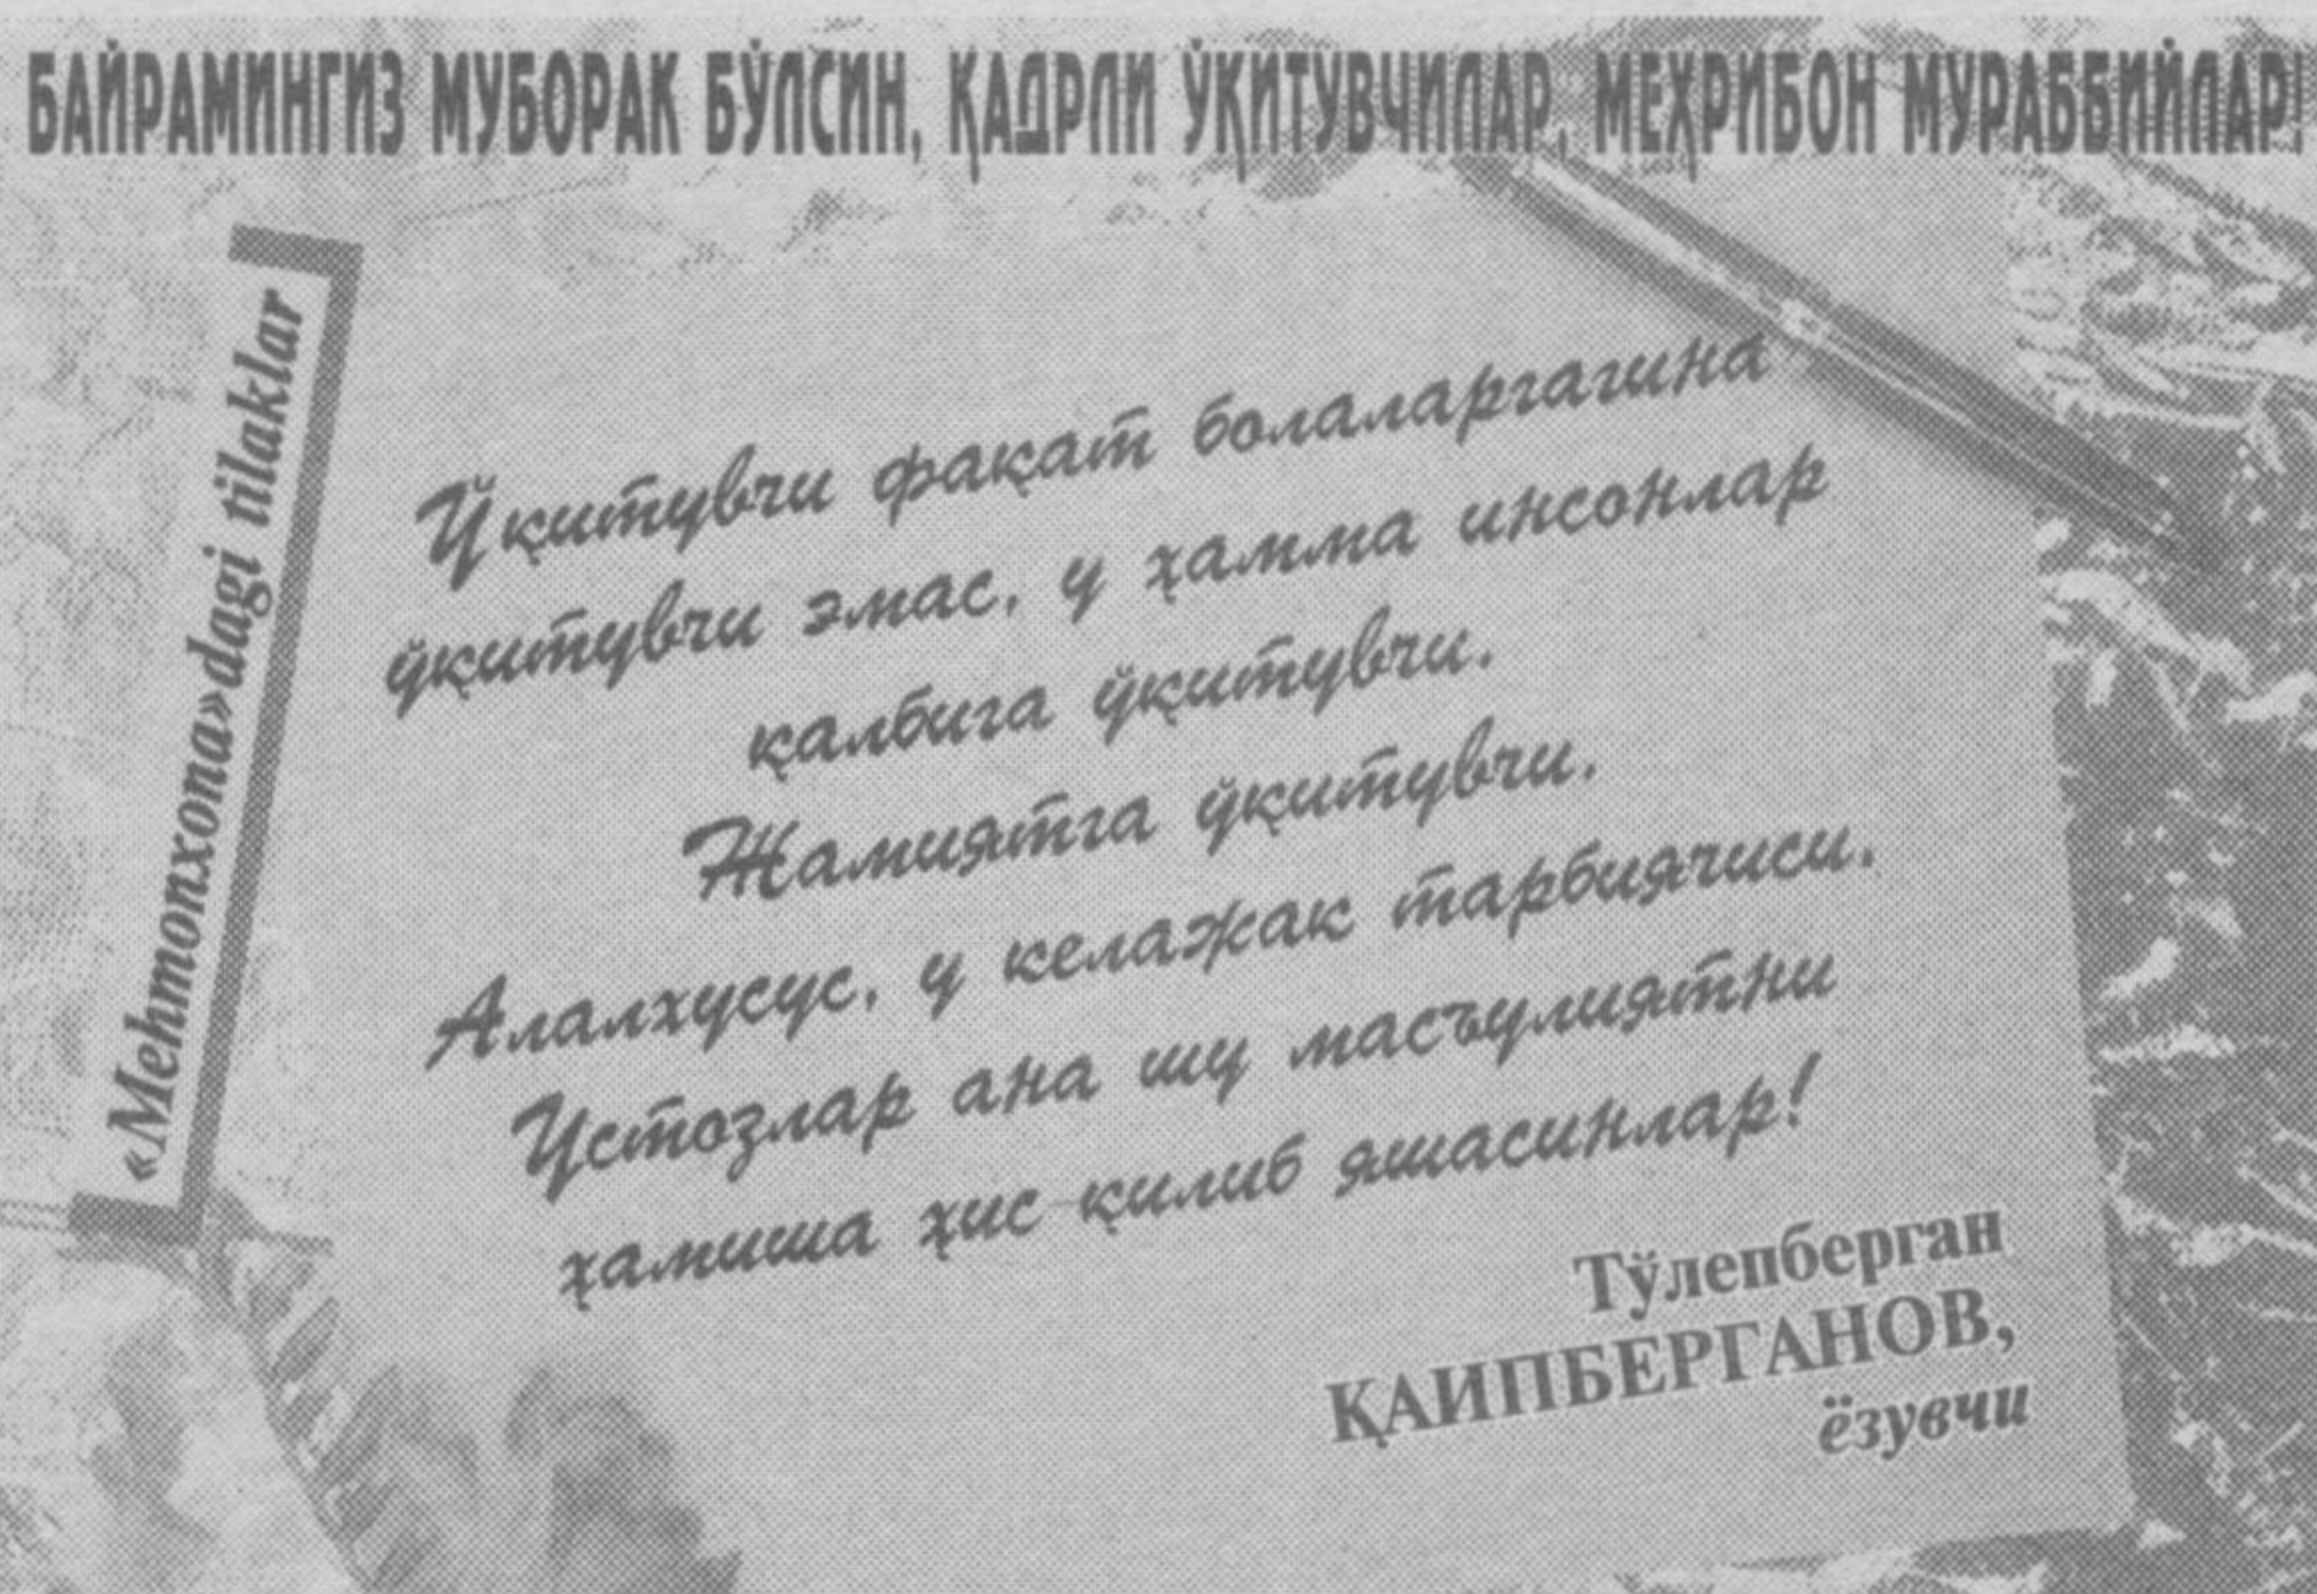 БАЙРАМИНГИЗ МУБОРАК БЎЛСИН, ҚАДРЛИ ЎҚИТУВЧИЛАР, МЕҲРИБОН МУРАББИЙЛАР!
«Mehmonxona»dagi tilaklar
Ўқитувчи фақат болаларгагина
ўқитувчи эмас, у ҳамма инсонлар
қалбига ўқитувчи.
Жамиятга ўқитувчи.
Алалхусус, у келажак тарбиячиси.
Устозлар ана шу масъулиятни
ҳамиша ҳис қилиб яшасинлар!
Тўлепберган
ҚАИПБЕРГАНОВ,
ёзувчи